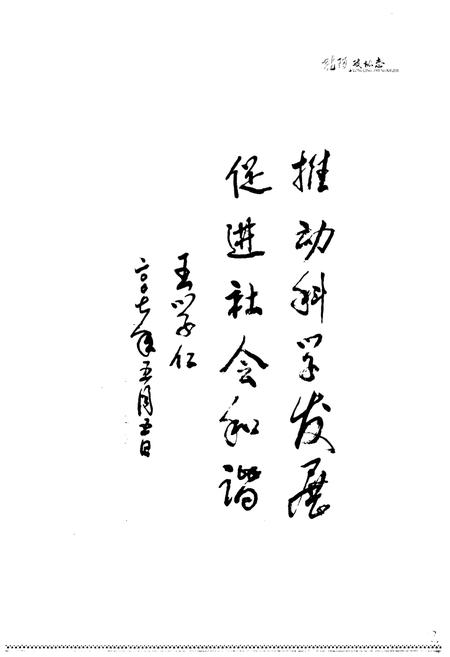 推动科学发展
促进社会和谐
王学仁
二〇〇七年五月五日